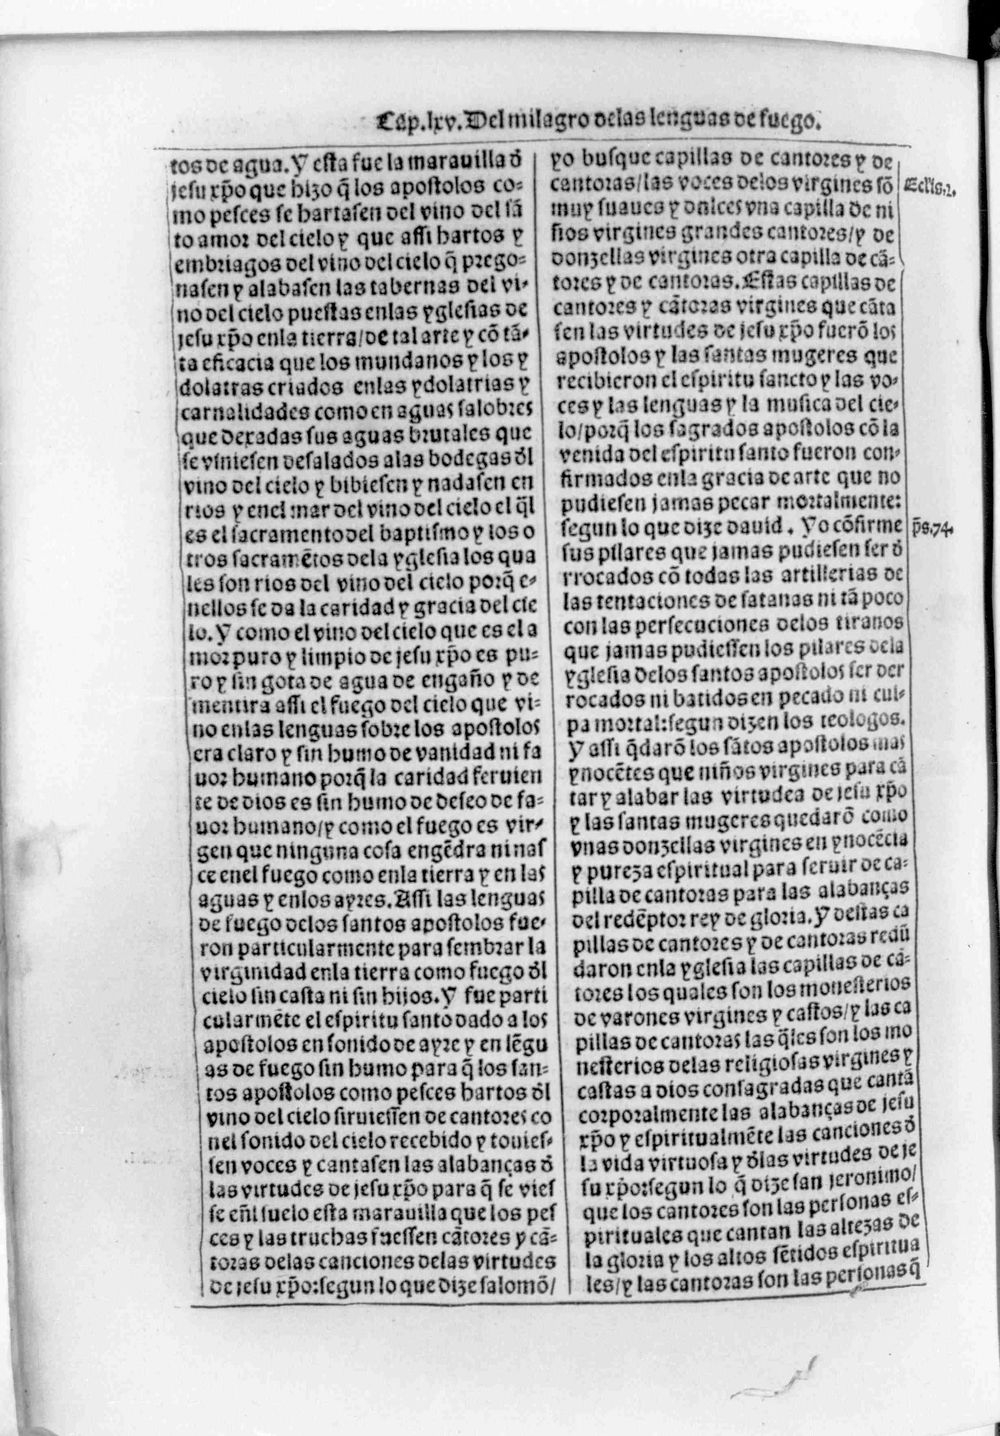 Cap.lxv.Del milagro delas lenguas de fuego.
tos de agua.Y esta fue la marauilla d̄
jesu xp̄o que hizo q̄ los apostolos co-
mo pesces se hartasen del vino del sā
to amor del cielo y que assi hartos y
embriagos del vino del cielo q̄ prego-
nasen y alabasen las tabernas del vi-
no del cielo puestas enlas yglesias de
jesu xp̄o enla tierra/de tal arte y cō tā-
ta eficacia que los mundanos y los y
dolatras criados enlas ydolatrias y
carnalidades como en aguas salobres
que dexadas sus aguas brutales que
se viniesen desalados alas bodegas d̄l
vino del cielo y bibiesen y nadasen en
rios y enel mar del vino del cielo el q̄l
es el sacramento del baptismo y los o
tros sacramētos dela yglesia los qua
les son rios del vino del cielo porq̄ e-
nellos se da la caridad y gracia del cie
lo.Y como el vino del cielo que es el a
mor puro y limpio de jesu xp̄o es pu-
ro y sin gota de agua de engaño y de
mentira assi el fuego del cielo que vi-
no enlas lenguas sobre los apostolos
era claro y sin humo de vanidad ni fa
uor humano porq̄ la caridad feruien
te de dios es sin humo de deseo de fa-
uor humano/y como el fuego es vir-
gen que ninguna cosa engēdra ni nas
ce enel fuego como enla tierra y en las
aguas y enlos ayres.Assi las lenguas
de fuego delos santos apostolos fue-
ron particularmente para sembrar la
virginidad enla tierra como fuego d̄l
cielo sin casta ni sin hijos.Y fue parti
cularmēte el espiritu santo dado a los
apostolos en sonido de ayre y en lēgu
as de fuego sin humo para q̄ los san-
tos apostolos como pesces hartos d̄l
vino del cielo siruiessen de cantores co
nel sonido del cielo recebido y touies-
sen voces y cantasen las alabanças d̄
las virtudes de jesu xp̄o para q̄ se vies
se eñl suelo esta marauilla que los pes
ces y las truchas fuessen cātores y cā-
toras delas canciones delas virtudes
de jesu xp̄o:segun lo que dize salomō/
yo busque capillas de cantores y de
cantoras/las voces delos virgines sō
muy suaues y dulces vna capilla de ni
ños virgines grandes cantores/y de
donzellas virgines otra capilla de cā-
tores y de cantoras.Estas capillas de
cantores y cātoras virgines que cāta
sen las virtudes de jesu xp̄o fuerō los
apostolos y las santas mugeres que
recibieron el espiritu sancto y las vo-
ces y las lenguas y la musica del cie-
lo/porq̄ los sagrados apostolos cō la
venida del espiritu santo fueron con-
firmados enla gracia de arte que no
pudiesen jamas pecar mortalmente:
segun lo que dize dauid. Yo cōfirme
sus pilares que jamas pudiesen ser d̄
rrocados cō todas las artillerias de
las tentaciones de satanas ni tā poco
con las persecuciones delos tiranos
que jamas pudiessen los pilares dela
yglesia delos santos apostolos ser der
rocados ni batidos en pecado ni cul-
pa mortal:segun dizen los teologos.
Y assi q̄darō los sātos apostolos mas
ynocētes que niños virgines para cā
tar y alabar las virtudea de jesu xp̄o
y las santas mugeres quedarō como
vnas donzellas virgines en ynocēcia
y pureza espiritual para seruir de ca-
pilla de cantoras para las alabanças
del redēptor rey de gloria.Y destas ca
pillas de cantores y de cantoras redū
daron enla yglesia las capillas de cā-
tores los quales son los monesterios
de varones virgines y castos/y las ca
pillas de cantoras las q̄les son los mo
nesterios delas religiosas virgines y
castas a dios consagradas que cantā
corporalmente las alabanças de jesu
xp̄o y espiritualmēte las canciones d̄
la vida virtuosa y d̄las virtudes de je
su xp̄o:segun lo q̄ dize san jeronimo/
que los cantores son las personas es-
pirituales que cantan las altezas de
la gloria y los altos sētidos espiritua
les/y las cantoras son las personas q̄
Eclīs.2.
p̄s.74.